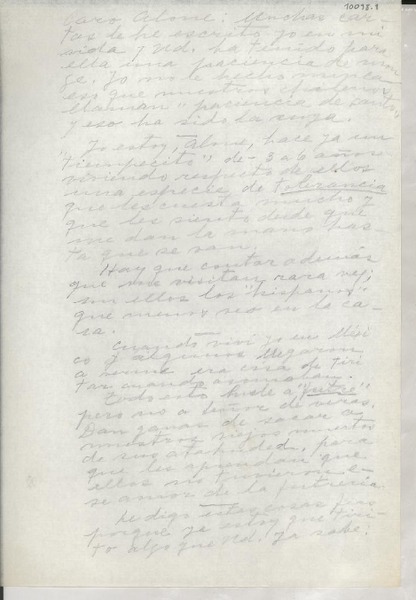 10098.8
Caro Alone: Muchas car
tas le he escrito yo en mi
vida y Ud. ha tenido para
ella una paciencia de mon
je. Yo me he hecho muy
eso que nuestros
llaman "paciencia de santo"
y eso ha sido la suya.
Yo estoy, Alone, hace ya un
"tiempecito" de - 3 a 6 años -
viviendo respecto de ellos
una especie de tolerancia
que les cuesta mucho y
que les siento desde que
me dan la mano has-
ta que se van.
Hay que contar además
que me visitan rara vez,
son ellos los "hispanos"
que menos veo en la ca-
sa.
Cuando viví yo en Méxi
co y algunos llegaron
a verme era cosa de tiri
tar cuando asomaban.
Todo esto huele a "futre"
pero no a señor de veras.
Dan ganas de sacar a
nuestros viejos muertos
de su ataúd, para
que les aprendan que
ellos no tuvieron e-
se amor de la futrería.
Le digo estas cosas
porque ya estoy que tiri-
to algo que Ud. ya sabe: